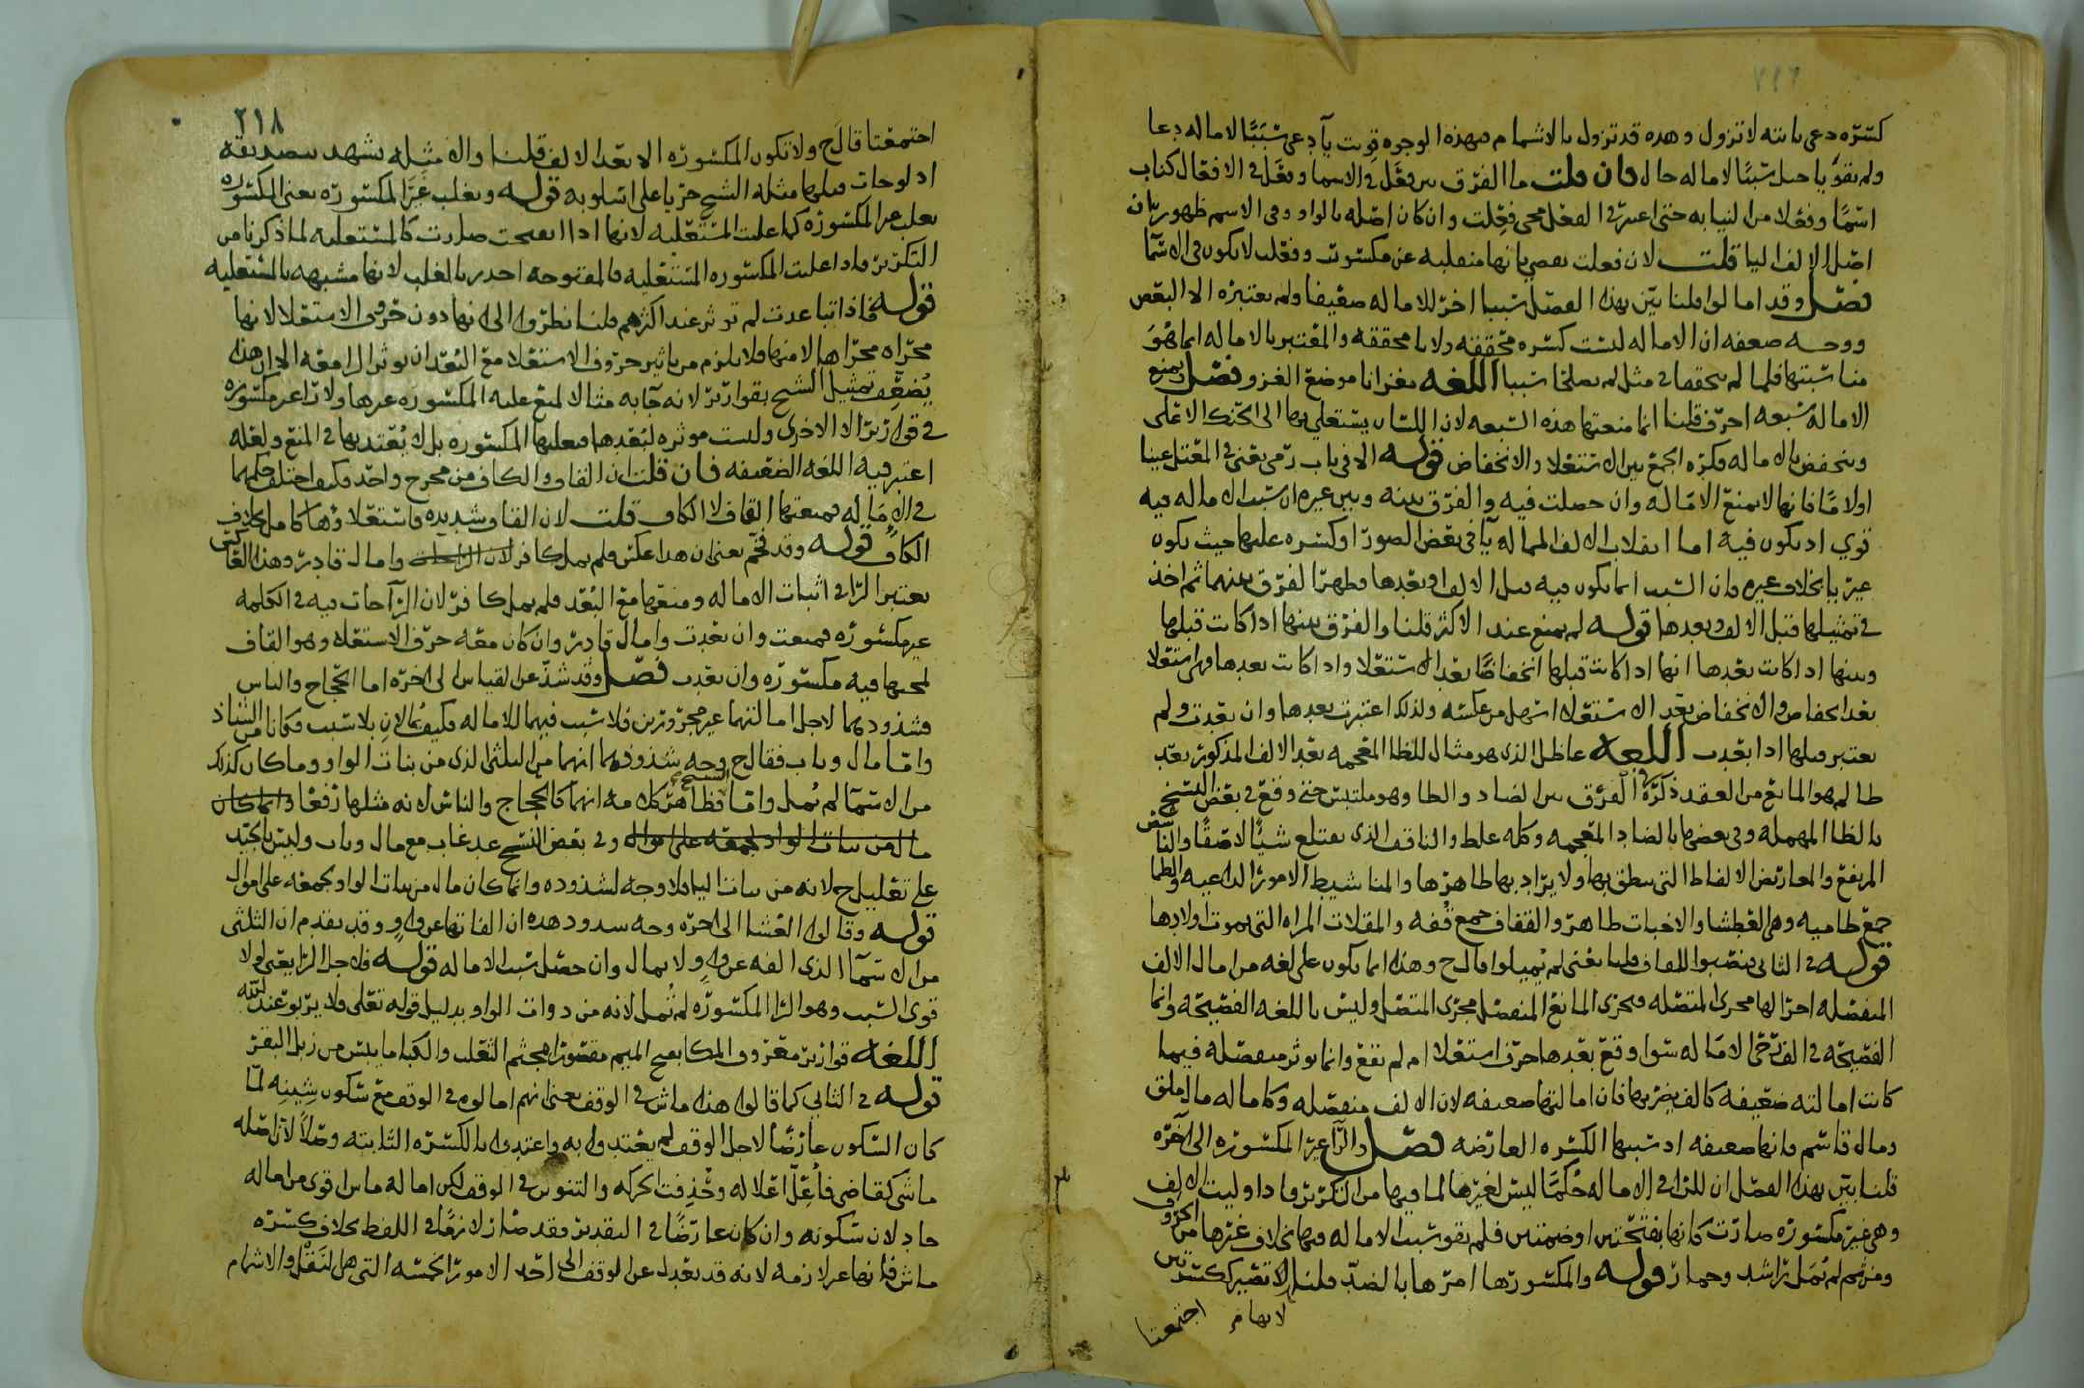 كسره دعى ثابته لا تزول وهده قد تزول بالاشمام فبهذه الوجوه قويت يا دعى سببًا لاماله دعا
ولم تقو يا حبلى سببًا لاماله حال فان قلت ما الفرق بين فعل في الاسما وفعل في الافعال كتاب
اسمًا وفعلا من اليا به حتى اعتبر في الفعل مجي فعلت وان كان اصله بالواو وفي الاسم ظهور بان
اصل الالف اليا قلت لان فعلت يقضي بانها منقلبه عن مكسور وفعلت لا يكون في الاسما
فصل وقد امالوا قلنا بين بهذا الفصل سببا اخر للاماله ضعيفا ولم يعتبره الا البعض
ووجه ضعفه ان الاماله ليست كسره محققه ولا يا محققه والمعتبر بالاماله انما هو
مناسبتها فلما لم يحققها في مثل لم يصلحا سببا اللغه مغزانا موضع الغزو فصل ويمنع
الاماله سبعه احرف قلنا انما منعتها هذه السبعه لان اللسان يستعلي بها الى الحنك الاعلى
وينخفض بالاماله فكره الجمع بين الاستعلا والانخفاض قوله الا في باب رمى يعني في المعتل عينا
او لامًا فانها لا تمنع الاماله وان حصلت فيه والفرق بينه وبين غيره ان سبب الاماله فيه
قوي اذ يكون فيه اما انقلاب الالف الممالة يآ في بعض الصور او كسره عليها حيث يكون
غير يا بخلاف غيره فان السبب انما يكون فيه قبل الالف او بعدها فظهر الفرق بينهما ثم اخذ
في تمثيلها قبل الالف وبعدها قوله لم يمنع عند الاكثر قلنا والفرق بينها اذا كانت قبلها
وبينها اذا كانت بعدها انها اذا كانت قبلها انخفاضًا بعد الاستعلا واذا كانت بعدها فهي استعلا
بعد انخفاض والانخفاض بعد الاستعلا اسهل من عكسه ولذلك اعتبرت بعدها وان بعدت ولم
يعتبر قبلها اذا بعدت اللغه عاظل الذي هو مثال للظا المعجمه بعد الالف المذكور بعد
طالم هو المانع من العقد ذكره الفرق بين الضاد والظا وهو ملتبس حتى وقع في بعض النسخ
بالطا المهمله وفي بعضها بالضاد المعجمه وكله غلط والناقف الذي يقتلع شيًا لاصقًا والناشص
المرتفع والمعاريض الالفاظ التي ينطق بها ولا يراد بها ظاهرها والمناشيط الامور الداعيه والظما
جمع ظاميه وهي العطشا والاخبات طاهر والقفاف جمع قُفه والمقلات المراه التي يموت اولادها
قوله في الثاني فنصبوا للقاف قلنا يعني لم يُميلوا قال ح وهذا انما يكون على لغه من امال الالف
المنفصله اجرا لها مجرى المتصله ومجرى المانع المنفصل مجرى المتصل وليس باللغه الفصيحه وانما
الفصيحه في الف رحى الاماله سوا وقع بعدها حرف استعلا ام لم يقع وانما يوثر منفصله فيما
كانت امالته ضعيفه كالف يضربها فان امالتها ضعيفه لان الالف منفصله وكاماله مال ملق
ومال قاسم فانها ضعيفه اذ سببها الكسره العارضه فصل والرا غير المكسوره الى اخره
قلنا بين بهذا الفصل ان للرا في الاماله حُكمًا ليس لغيرها لما فيها من التكرير فاذا وليت الالف
وهي غير مكسوره صارت كانها بفتحتين او ضمتين فلم تقو سبب الاماله فيها بخلاف غيرها من الحروف
ومن ثم لم تُمل راشد وحمار قوله والمكسوره امرها بالضد قلنا لانها تصير ككسرتين
لانها م اجتمعتا
٢١٨
اجتمعتا قال ح ولا تكون المكسوره الا بعد الالف قلنا والامثله تشهد بتصديقه
اذ لو جات قبلها مثله الشيخ جريا على اسلوبه قوله وتغلب غير المكسوره يعني المكسوره
تغلب غير المكسوره كما غلبت المستعليه لانها اذا انفتحت صارت كالمستعليه لما ذكرنا من
التكرير فاذا غلبت المكسوره المستعليه فالمفتوحه اجدر بالغلب لانها مشبهه بالمستعليه
قوله فاذا تباعدت لم توثر عند اكثرهم قلنا نظروا الى انها دون حرفي الاستعلا لانها
مجراه مجراها لا منها فلا يلزم من تاثير حروف الاستعلا مع البعد ان يوثر الرا معه الا ان هذا
يُضعِف تمثيل الشيخ بقوارير لانه جآ به مثالا لمنع غلبه المكسوره غيرها ولا را غير مكسوره
في قوارير الا الاخرى وليست موثره لبعدها فغلبها المكسوره بل لا يُعتد بها في المنع ولعله
اعتبر فيه اللغه الضعيفه فان قلت ان القاف والكاف من مخرج واحد فكيف اختلف حكمهما
في الاماله فمنعتها القاف لا الكاف قلت لان القاف شديده واستعلاوها كامل بخلاف
الكاف قوله وقد فخم بعضهم هذا عكس فلم يمل كافر لان الرا جات وامال قادر وهذا القايل
يعتبر الرا في اثبات الاماله ومنعها مع البعد فلم يمل كافر لان الرا جات فيه في الكلمه
غير مكسوره فمنعت وان بعدت وامال قادر وان كان معه حرف الاستعلا وهو القاف
لمجيها فيه مكسوره وان بعدت فصل وقد شذ عن القياس الى اخره اما الحجاج والناس
فشذوذهما لاجل امالتهما غير مجرورين فلا سبب فيهما للاماله فكيف يُمالان بلا سبب فكانا من الشاذ
واما مال وباب فقال ح وجه شذوذهما انهما من الثلثي الذي من بنات الواو وما كان كذلك
من الاسما لم يُمل واما فظاهر كلامه انهما كالحجاج والناس لانه مثلها رفعًا وانما كان
مال من بنات الواو لجمعه على اموال وفي بعض النسخ عد غاب مع مال وباب وليس بالجيد
على تعليل ح لانه من بنات اليا فلا وجه لشذوذه وانما كان مال من بنات الواو لجمعه على اموال
قوله وقالوا العشا الى اخره وجه شذوذ هذه ان الفاتها عن واوٍ وقد تقدم ان الثلثي
من الاسمآ الذي الفه عن واوٍ لا يمال وان حصل سبب الاماله قوله فلاجل الرا يعني لولا
قوى السبب وهو الرا المكسوره لم تُمل لانه من ذوات الواو بدليل قوله تعلى فلا يربو عند الله
اللغه قوارير معروف المكا بفتح الميم مقصورا مجثم الثعلب والكبا ما يبس من زبل البقر
قوله في الثاني كما قالوا هذا ماش في الوقف يعني انهم امالوه في الوقف مع سكون شينه لمّا
كان السكون عارضًا لاجل الوقف لم يعتدوا به واعتدوا بالكسره الثابته وصلاً لان اصله
ماشي كقاضي فأعِلّ اعلاله وحُذِفت الحركه والتنوين في الوقف لكن اماله ماس اقوى من اماله
جاد لان سكونه وان كان عارضًا في التقدير فقد صار لازمًا في اللفظ بخلاف كسره
ماش فانها غير لازمه لانه قد يعدل عن الوقف الى احد الامور الخمسه التي هي النقل والاشمام